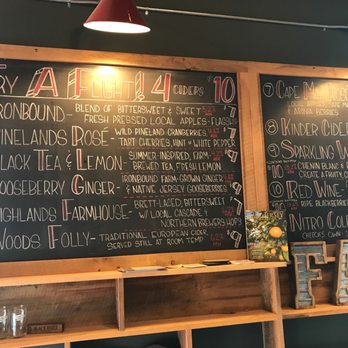 RY A FLIGHT! 4 CIDERS $10
RONBOUND- BLEND OF BITTERSWEET & SWEET
FRESH PRESSED LOCAL APPLES-FLAGSHIP
INELANDS ROSÉ- WILD PINELAND CRANBERRIES
TART CHERRIES, MINT & WHITE PEPPER
LACK TEA & LEMON- SUMMER-INSPIRED, FARM
BREWED TEA, FRESH LEMON
OOSEBERRY GINGER- IRONBOUND FARM-GROWN GINGER
& NATIVE JERSEY GOOSEBERRIES
IGHLANDS FARMHOUSE- BRETT-LACED, BITTERSWEET
W/ LOCAL CASCADE &
NORTHERN BREWERS HOPS
WOODS FOLLY- TRADITIONAL EUROPEAN CIDER,
SERVED STILL AT ROOM TEMP
7 CAPE MAY
8 KINDER CIDER
9 SPARKLING
CHENIN BLANC &
CREATE A FRUITY,
10 RED WINE-
RIPE BLACKBERR
NITRO COL
F